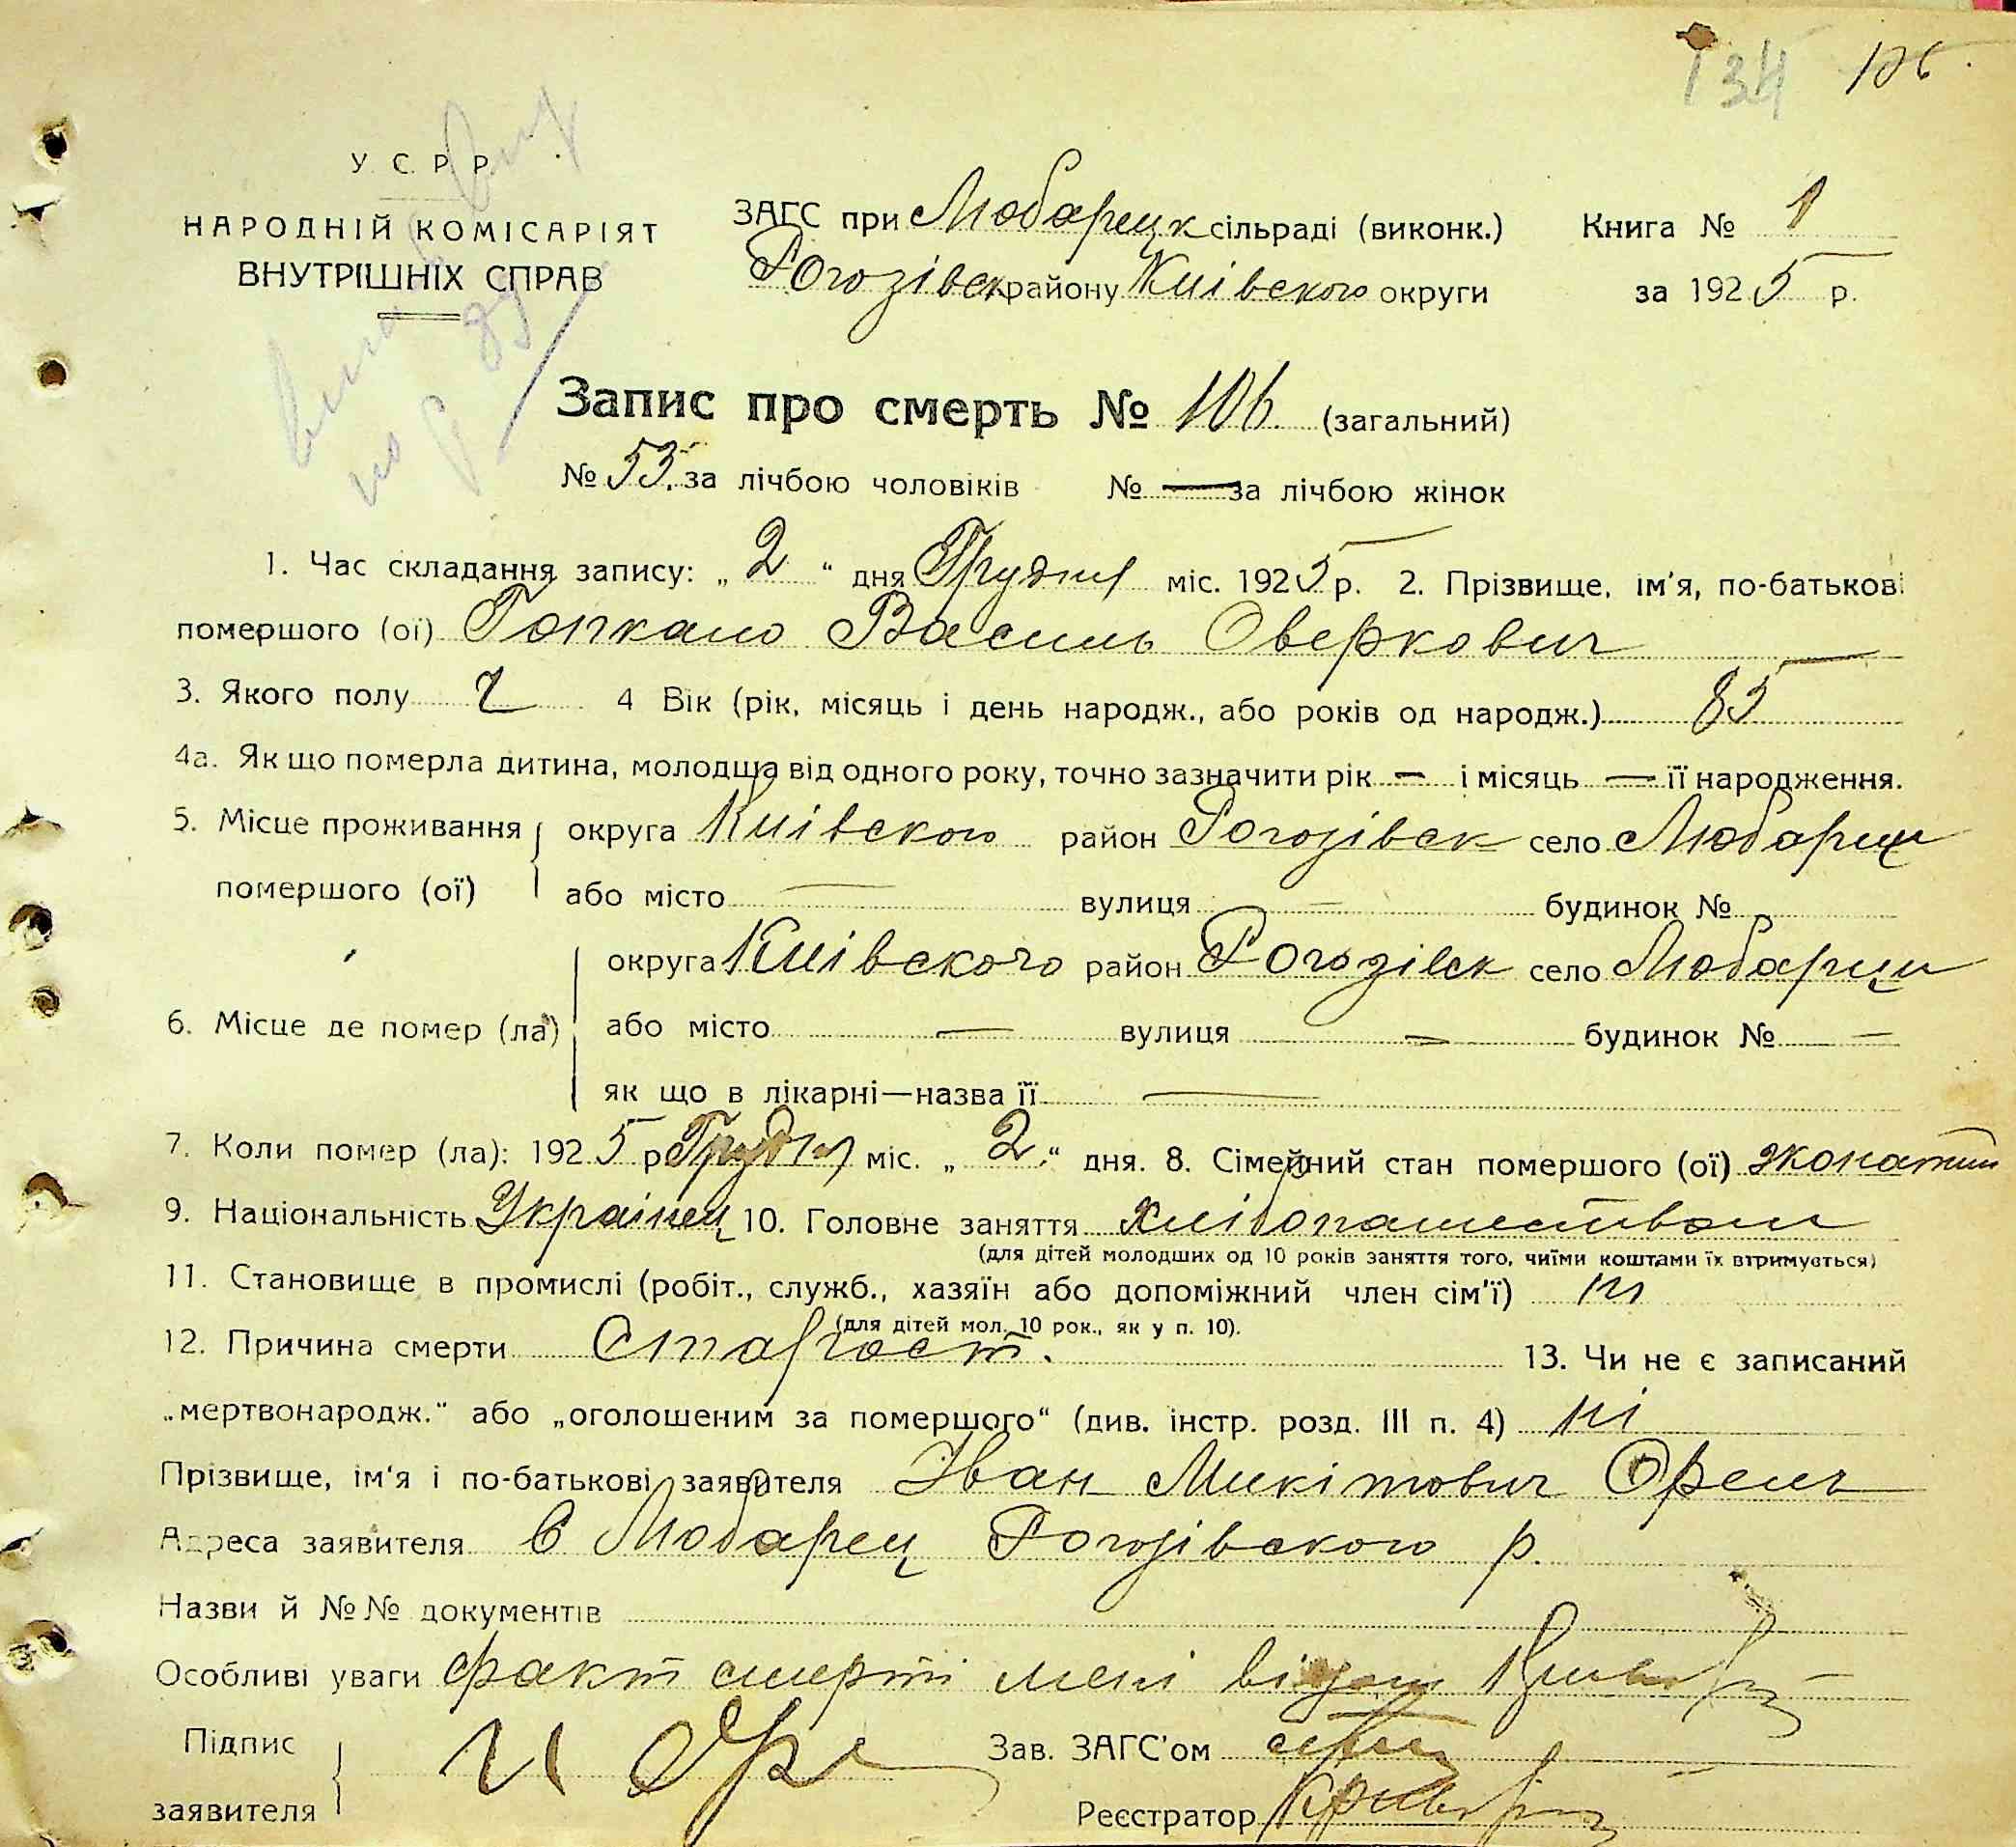 134 106.
У. С. Р. Р.
НАРОДНІЙ КОМІСАРІЯТ
ВНУТРІШНІХ СПРАВ
ЗАГС при Любарецк сільраді (виконк.) Книга № 1
Рогозівск району Київского округи за 1925 р.
Запис про смерть № 106. (загальний)
№ 53. за лічбою чоловіків № — за лічбою жінок
1. Час складання запису: „2“ дня Грудня міс. 1925 р. 2. Прізвище, ім'я, по-батькові
помершого (ої) Гопкало Василь Оверкович
3. Якого полу ч 4 Вік (рік, місяць і день народж., або років од народж.) 85
4а. Як що померла дитина, молодща від одного року, точно зазначити рік — і місяць — її народження.
5. Місце проживання округа Київского район Рогозівск село Любарци
помершого (ої) або місто — вулиця — будинок №
округа Київского район Рогозівск село Любарци
6. Місце де помер (ла) або місто — вулиця — будинок № —
як що в лікарні—назва її —
7. Коли помер (ла): 1925 р Грудня міс. „2.“ дня. 8. Сімейний стан помершого (ої) жонатий
9. Національність Українец 10. Головне заняття хлібопашеством
(для дітей молодших од 10 років заняття того, чиїми коштами їх втримується)
11. Становище в промислі (робіт., служб., хазяїн або допоміжний член сім'ї)
(для дітей мол. 10 рок., як у п. 10).
12. Причина смерти Старост. 13. Чи не є записаний
„мертвонародж.“ або „оголошеним за помершого“ (див. інстр. розд. III п. 4) ні
Прізвище, ім'я і по-батькові заявителя Іван Микітович Орель
Адреса заявителя С Любарец Рогозівского р.
Назви й №№ документів
Особливі уваги факт смерті мені
Підпис
заявителя И Оре
Зав. ЗАГС'ом
Реєстратор